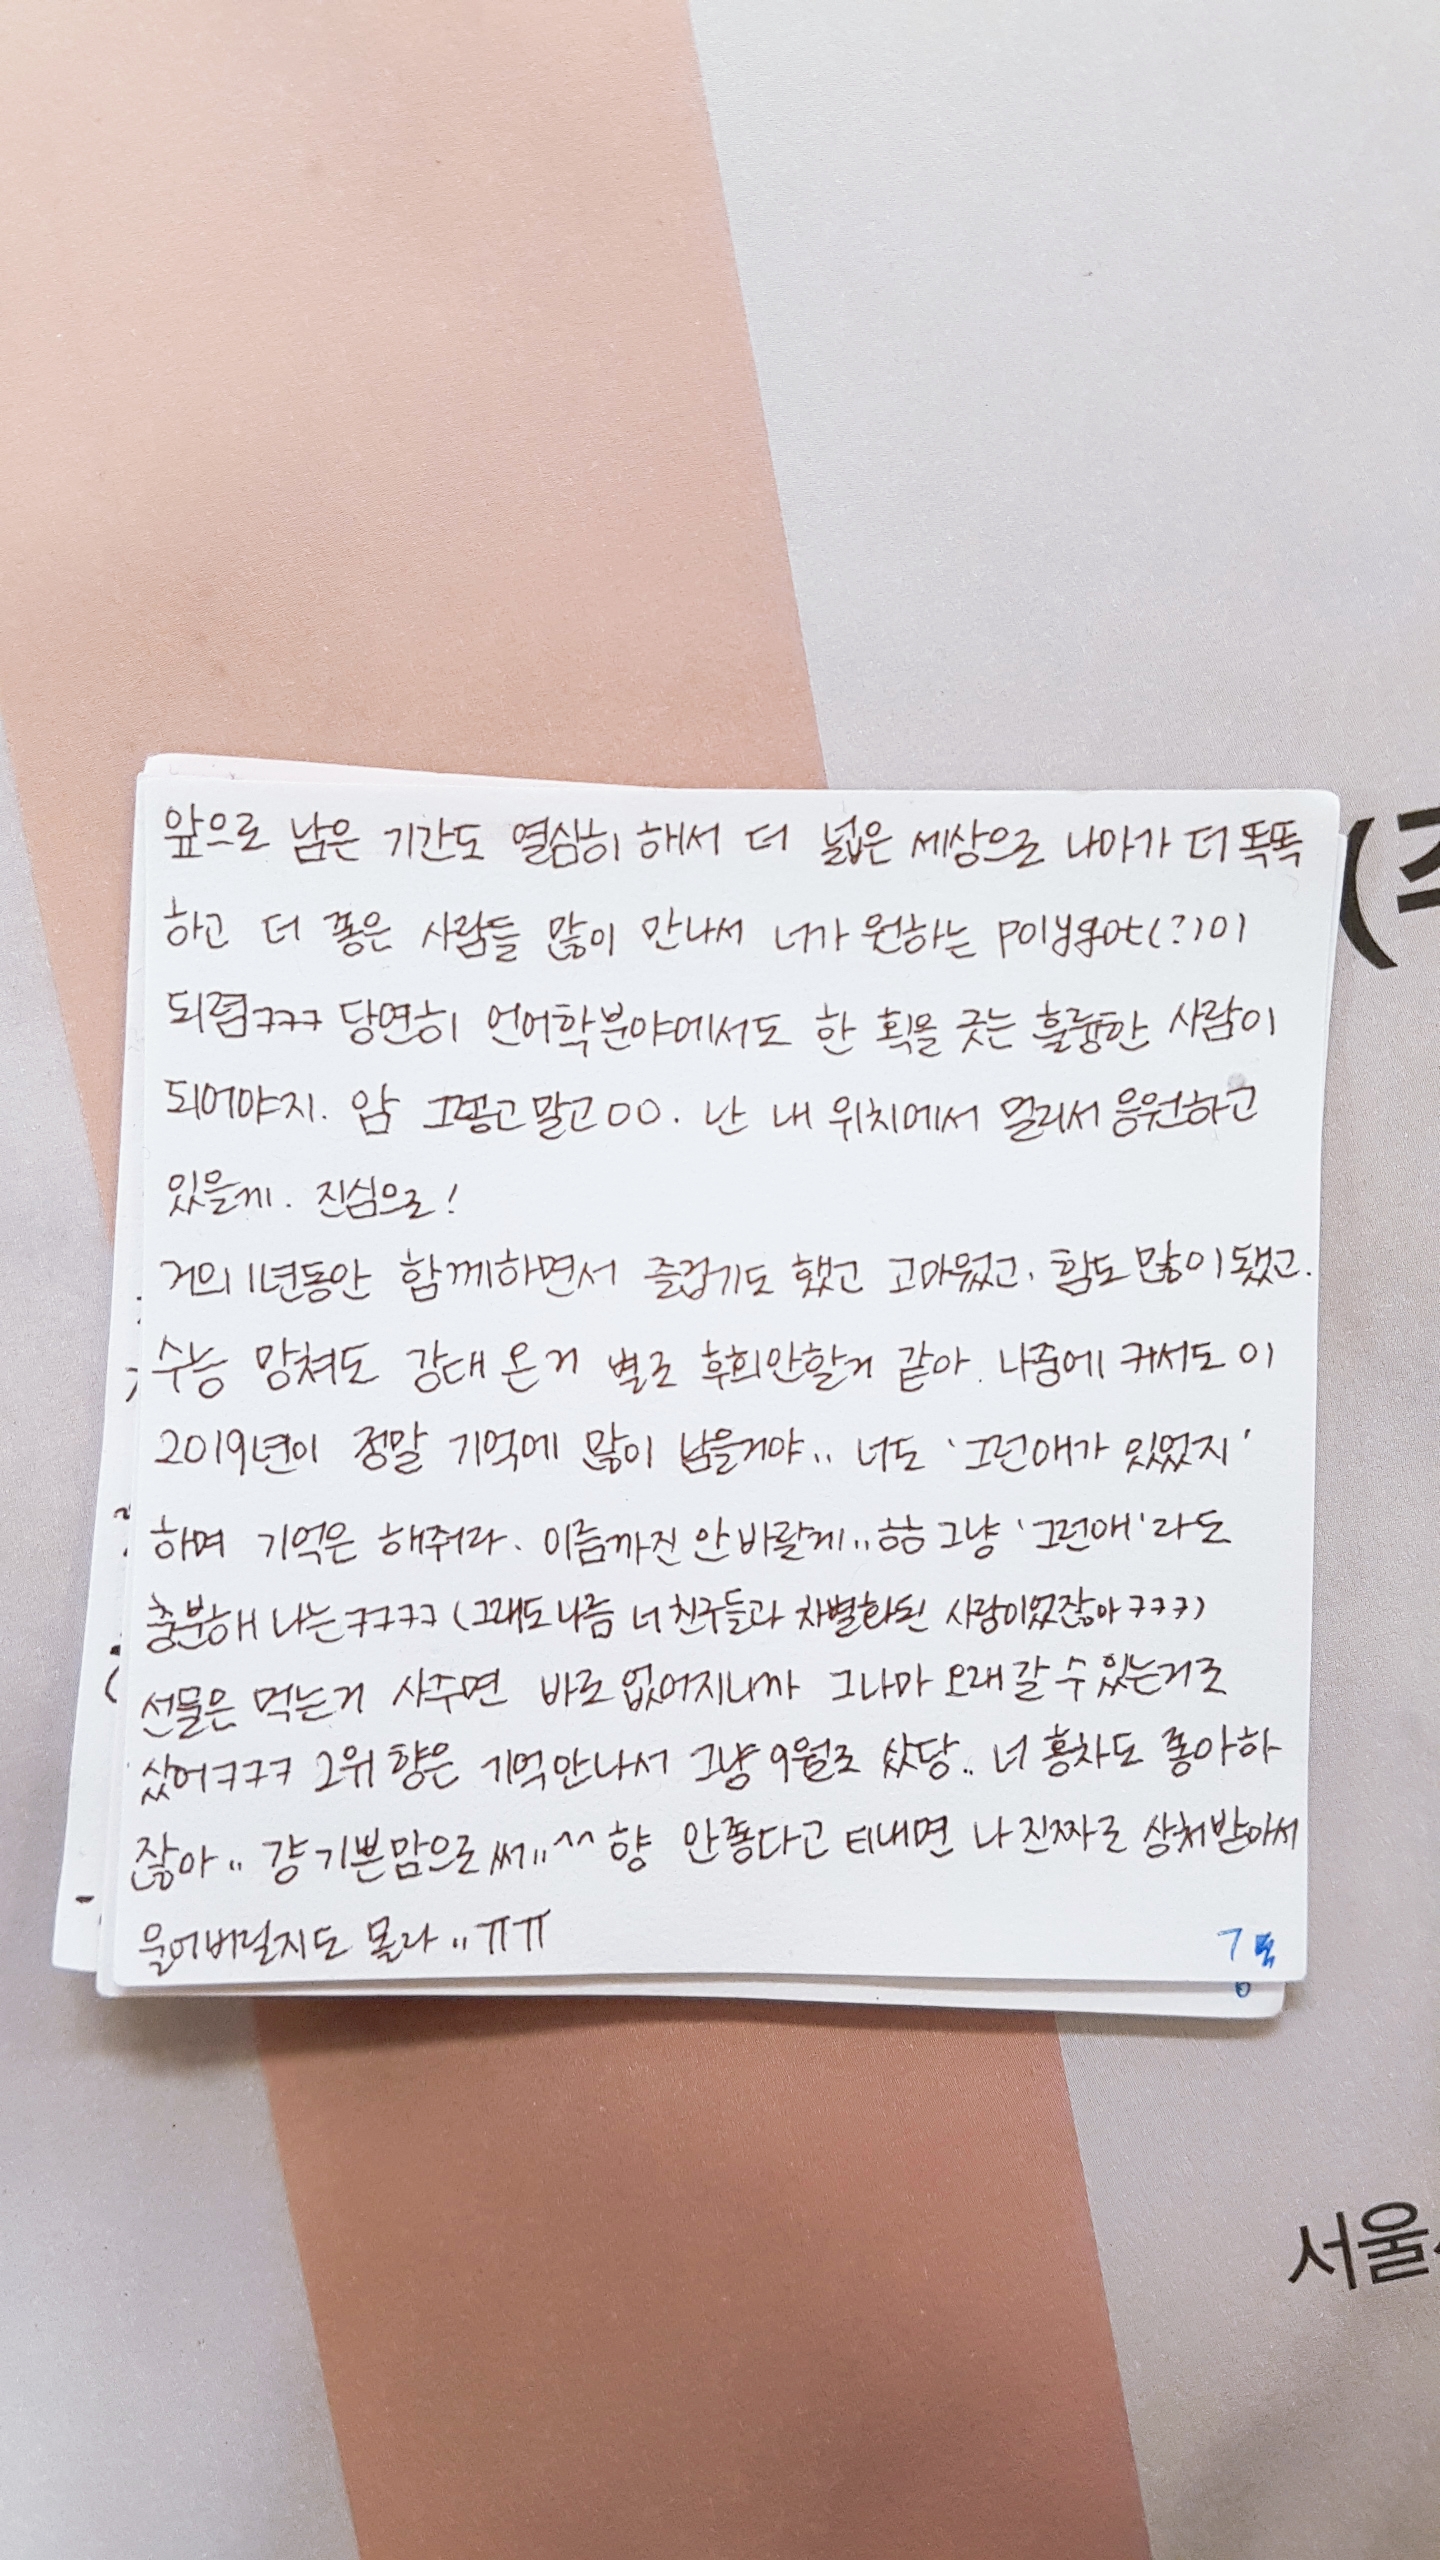 앞으로 남은 기간도 열심히 해서 더 넓은 세상으로 나아가 더 똑똑
하고 더 좋은 사람들 많이 만나서 너가 원하는 polygot(?)이
되렴ㅋㅋㅋ 당연히 언어학분야에서도 한 획을 긋는 훌륭한 사람이
되어야지. 암 그렇고말고ㅇㅇ. 난 내 위치에서 멀리서 응원하고
있을게. 진심으로!
거의 1년동안 함께하면서 즐겁기도 했고 고마웠고, 힘도 많이 됐고.
수능 망쳐도 강대 온거 별로 후회안할거 같아. 나중에 커서도 이
2019년이 정말 기억에 많이 남을거야.. 너도 '그런애가 있었지'
하며 기억은 해줘라. 이름까진 안바랄게..ㅎㅎ 그냥 '그런애'라도
충분해 나는ㅋㅋㅋㅋ (그래도 나름 너 친구들과 차별화된 사람이었잖아ㅋㅋㅋ)
선물은 먹는거 사주면 바로 없어지니까 그나마 오래갈 수 있는거로
샀어ㅋㅋㅋ 2위 향은 기억안나서 그냥 9월로 샀당.. 너 홍차도 좋아하
잖아.. 걍 기쁜맘으로 써..^^ 향 안좋다고 티내면 나 진짜로 상처받아서
울어버릴지도 몰라..ㅠㅠ
7
6
(주
서울